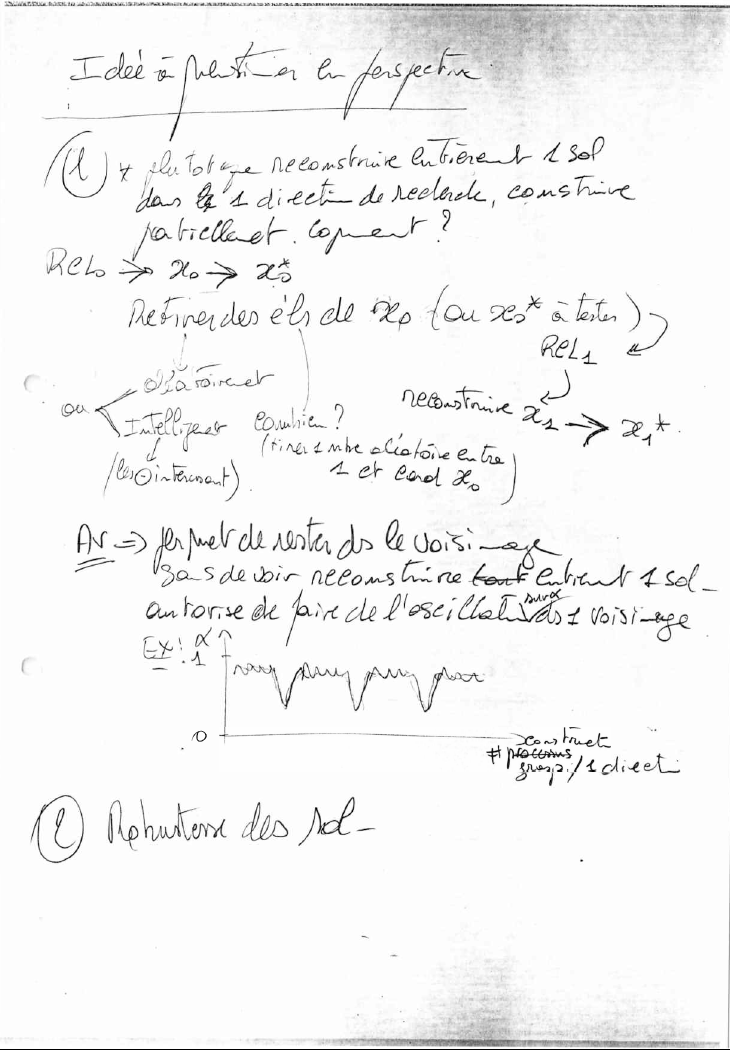 Idée à en perspective
① * plutot que reconstruire entièremt 1 sol
dans 1 direction de recherche, construire
partiellemet. Comment ?
RCL₀ → x₀ → x₀*
Retirer des éls de x₀ (ou x₀* à tester)
RCL₁
aléatoiremet
ou
Intelligemet
(les ⊖ intéressant)
combien ?
(tirer 1 nbre aléatoire entre
1 et card x₀)
reconstruire x₁ → x₁*.
Av ⇒ permet de rester ds le voisinage
sans devoir reconstruire tout entièremt 1 sol_
autorise de faire de l'oscillati sur α ds 1 voisinage
Ex: α
1
0
construct
# processus
grasp / 1 directi
② Robustesse des sol_